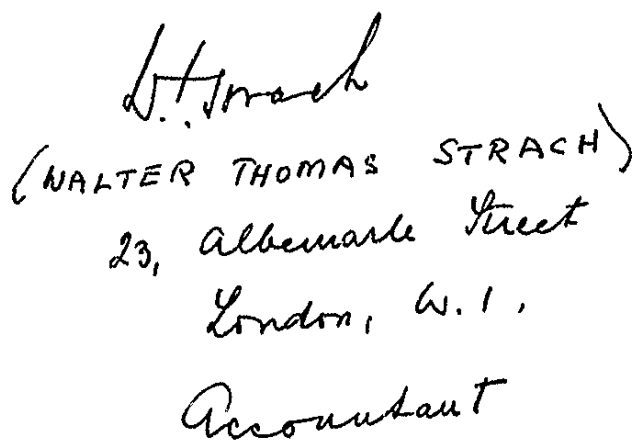 W.T. Strach
(WALTER THOMAS STRACH)
23, Albemarle Street
London, W.1.
Accountant